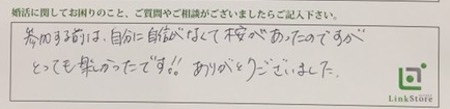 婚活に関してお困りのこと、ご質問やご相談がございましたらご記入下さい。
参加する前は、自分に自信がなくて不安があったのですが
とっても楽しかったです!! ありがとうございました.
LinkStore